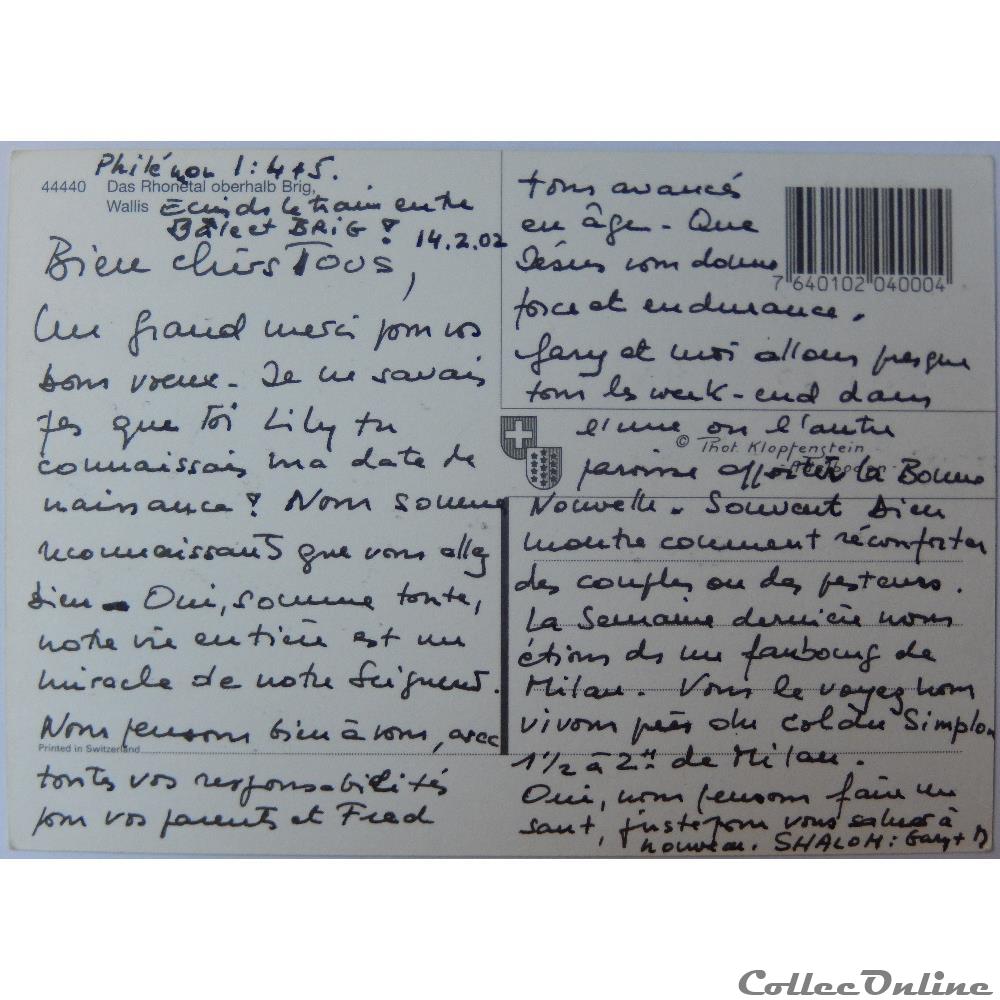 Philémon 1:4+5.
44440 Das Rhonetal oberhalb Brig,
Wallis Ecrit ds le train entre
Bâle et BRIG! 14.2.02
Bien chers Tous,
Un grand merci pour vos
bons voeux. Je ne savais
pas que Toi Lily tu
connaissais ma date de
naissance? Nous somme
reconnaissants que vous allez
bien - Oui, somme toute,
notre vie entière est un
miracle de notre Seigneur.
Nous pensons bien à vous, avec
Printed in Switzerland
toutes vos responsabilités
pour vos parents et Fred
tous avancés
en âge - Que
Jésus vous donne
force et endurance.
7 640102 040004
Gary et moi allons presque
tous les week-end dans
l'une ou l'autre
© Phot. Klopfenstein
Adelboden
paroisse apporter la Bonne
Nouvelle. Souvent Dieu
montre comment réconforter
des couples ou des pasteurs.
La Semaine dernière nous
étions ds un faubourg de
Milan. Vous le voyez nous
vivons près du col du Simplon
1 1/2 à 2 H de Milan.
Oui, nous pensons faire un
saut, juste pour vous saluer à
nouveau. SHALOM: Gary +
CollecOnline